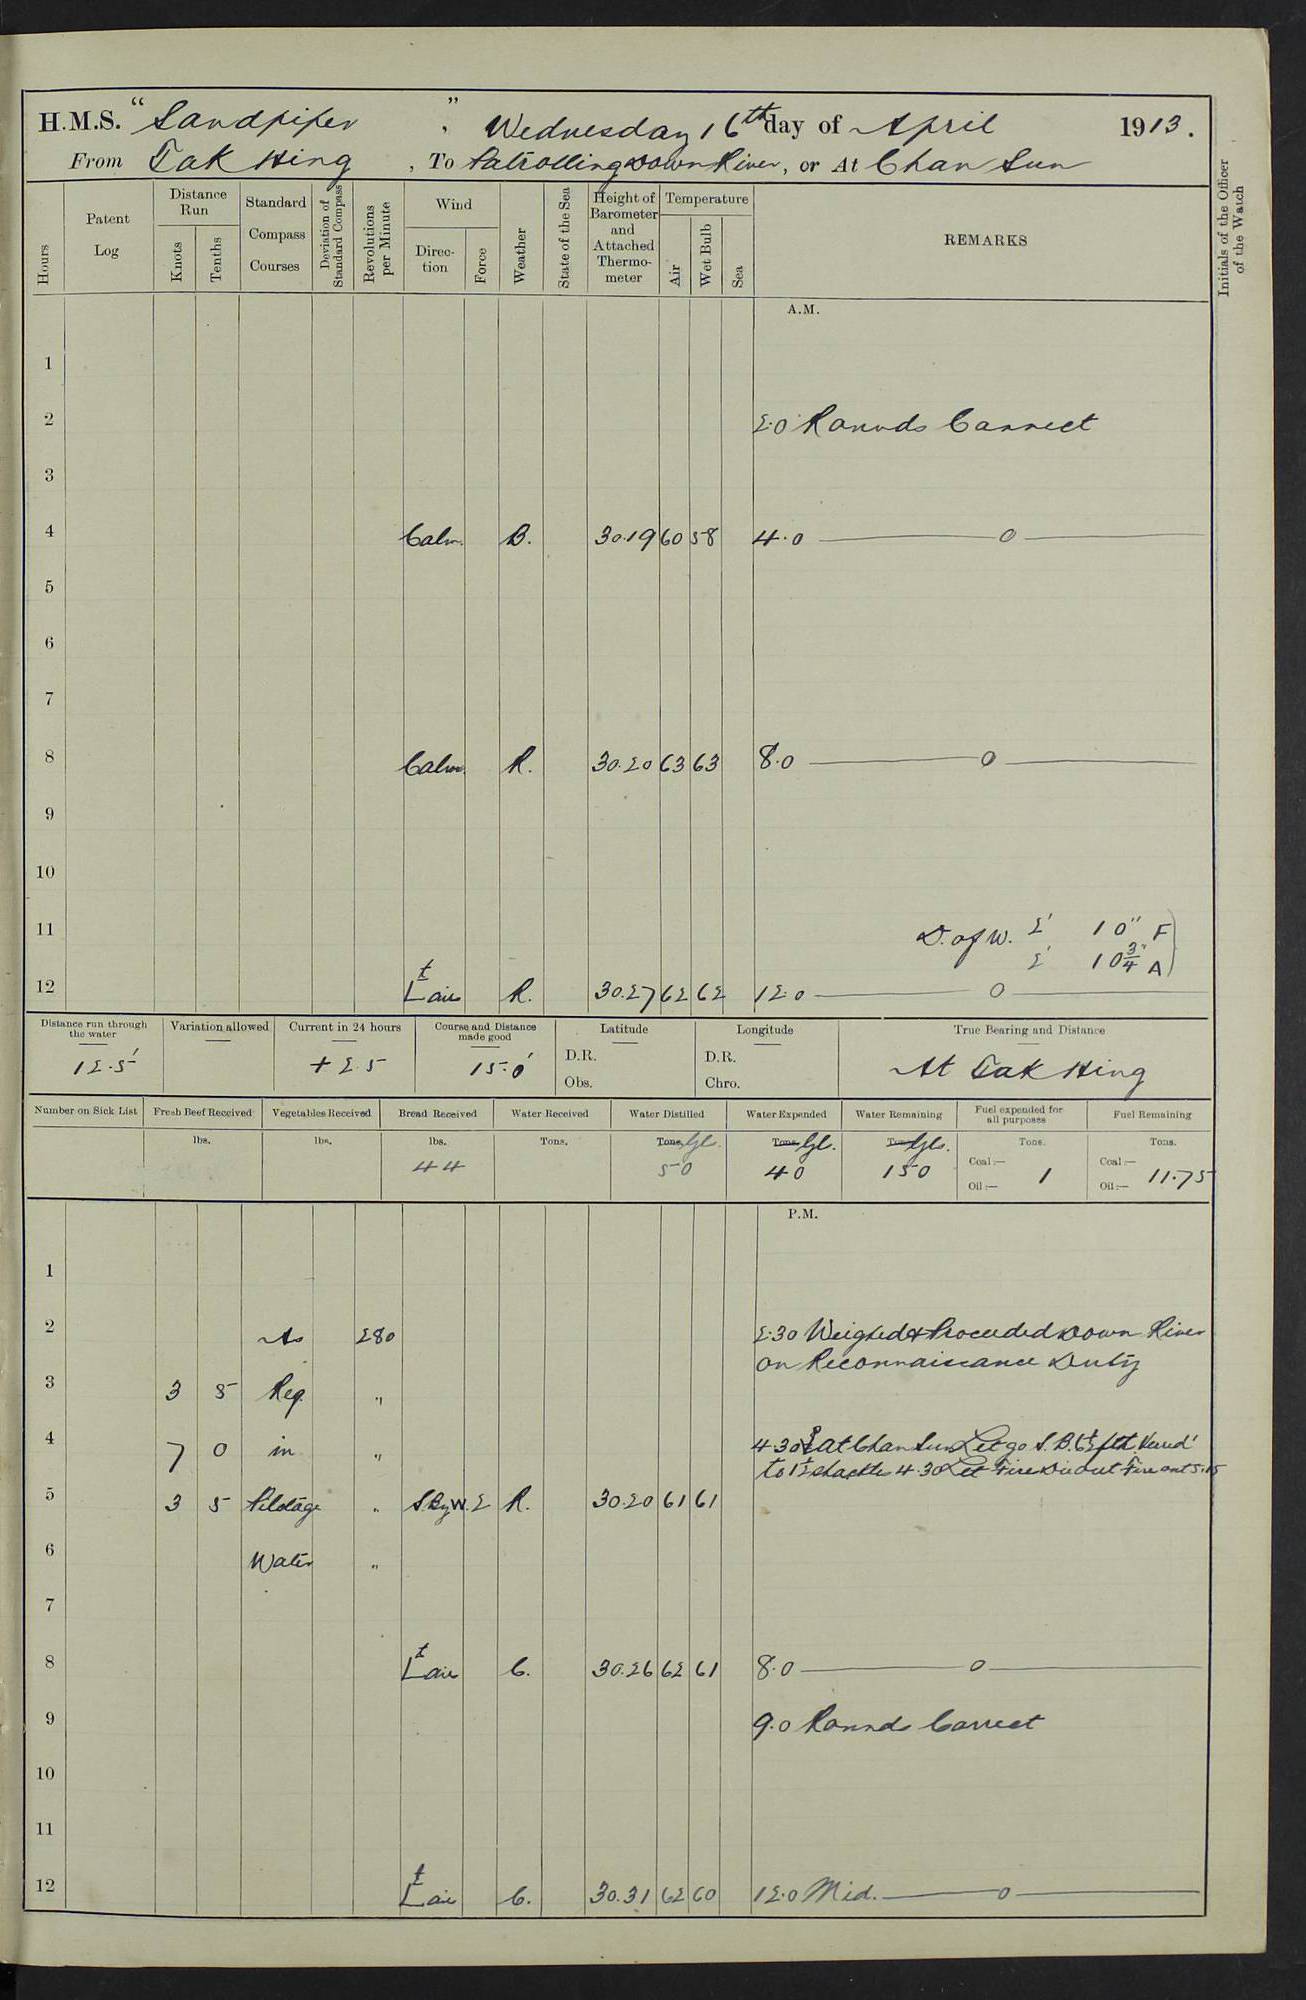 H.M.S. "Sandpiper", Wednesday 16th day of April 1913.
From Tak Hing, To Patrolling Down River, or At Chan Sun
Hours
Patent Log
Distance Run
Knots
Tenths
Standard Compass Courses
Deviation of Standard Compass
Revolutions per Minute
Wind
Direc-tion
Force
Weather
State of the Sea
Height of Barometer and Attached Thermo-meter
Temperature
Air
Wet Bulb
Sea
REMARKS
Initials of the Officer of the Watch
A.M.
1
2 2.0 Rounds Correct
3
4 Calm. B. 30.19 60 58 4.0 — 0 —
5
6
7
8 Calm. R. 30.20 63 63 8.0 — 0 —
9
10
11 D. of W. 2' 10" F
2' 10 3/4" A
12 Lt airs R. 30.27 62 62 12.0 — 0 —
Distance run through the water
Variation allowed
Current in 24 hours
Course and Distance made good
Latitude
Longitude
True Bearing and Distance
12.5' + 2.5 15.0' D.R. D.R. At Tak Hing
Obs. Chro.
Number on Sick List
Fresh Beef Received
Vegetables Received
Bread Received
Water Received
Water Distilled
Water Expended
Water Remaining
Fuel expended for all purposes
Fuel Remaining
lbs. lbs. lbs. Tons. Tons. Gls. Tons. Gls. Tons. Gls. Tons. Tons.
44 50 40 150 Coal:— Oil:— 1 Coal:— Oil:— 11.75
P.M.
1
2 As 280 2.30 Weighed & Proceeded Down River
on Reconnaissance Duty
3 3 5 Req. "
4 7 0 in " 4.30 at Chan Sun Let go S.B. 6½ fth. Veered
to 1½ shackles 4.30 Let Fire Die out Fire out 5.15
5 3 5 Pilotage " S. By W. 2 R. 30.20 61 61
6 Water "
7
8 Lt airs C. 30.26 62 61 8.0 — 0 —
9 9.0 Rounds Correct
10
11
12 Lt air C. 30.31 62 60 12.0 Mid. — 0 —